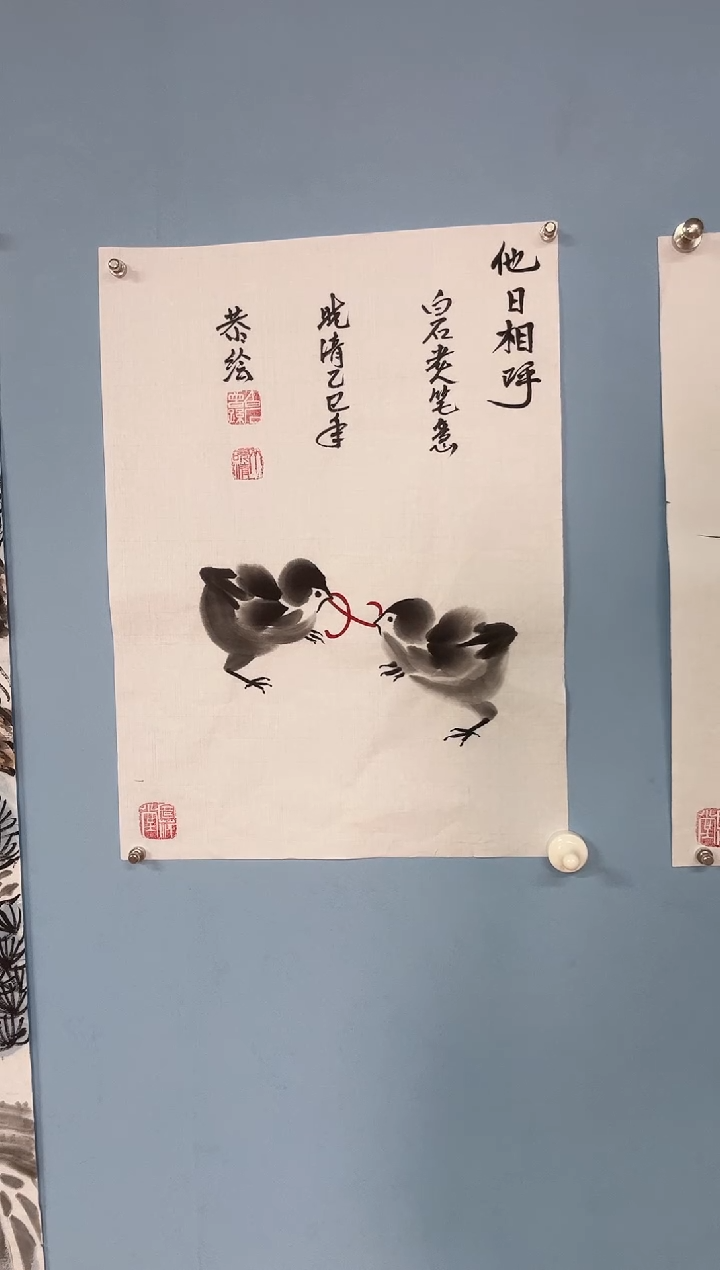 他日相呼
白石老人笔意
晓清乙巳年
恭绘